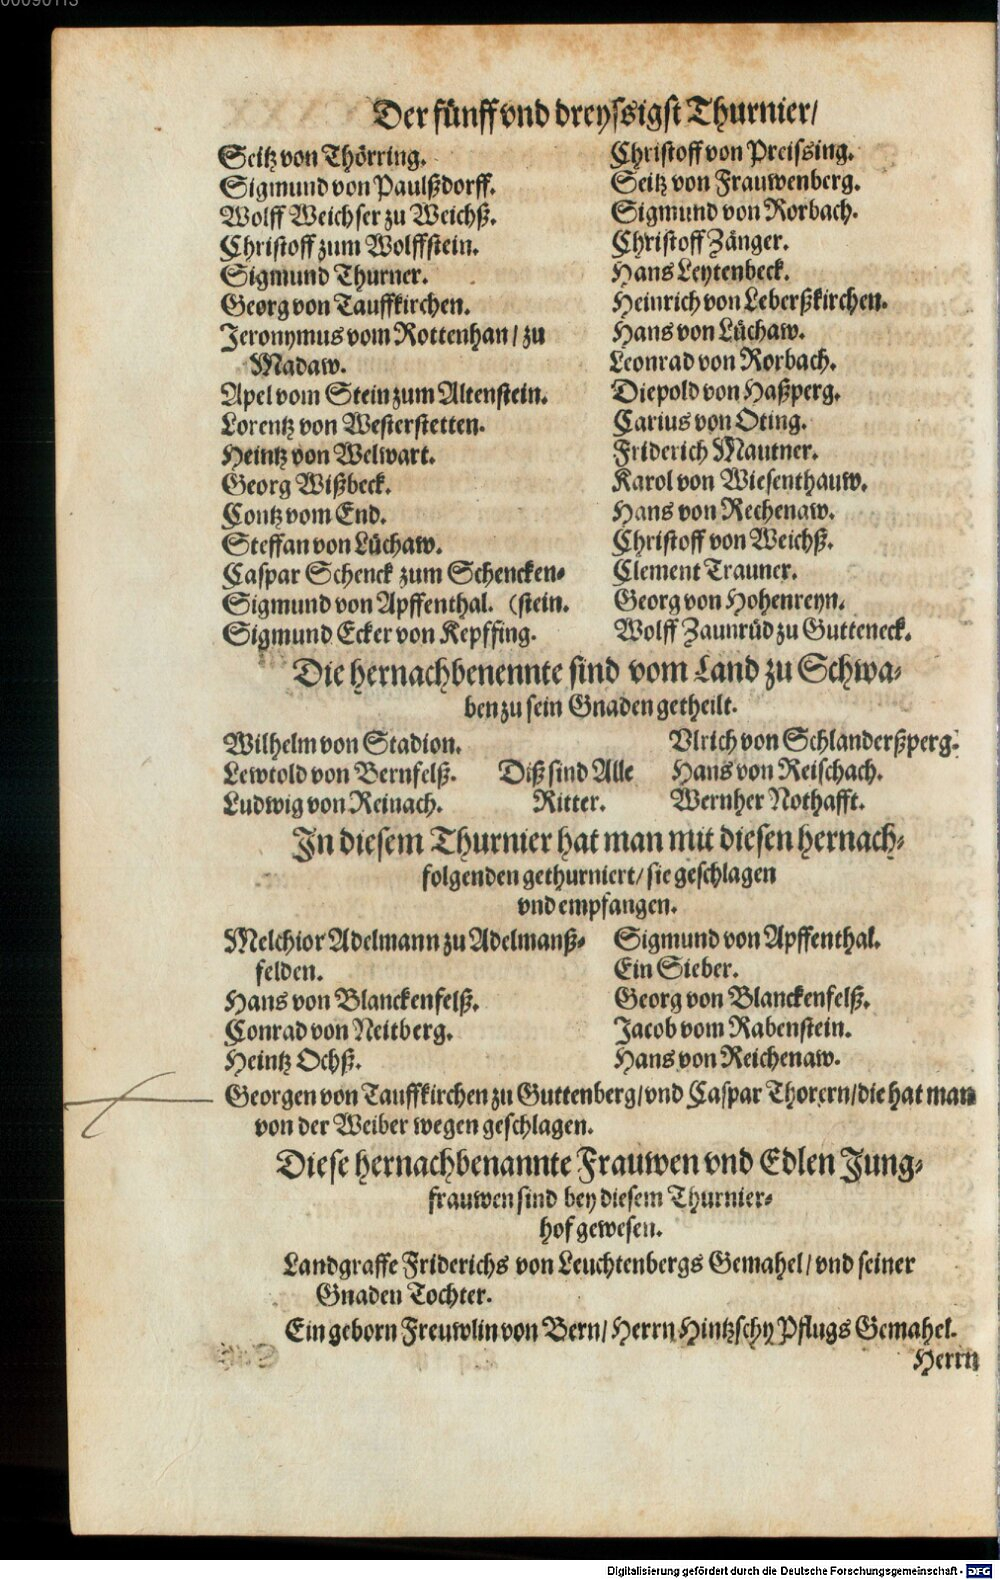 Der fünff vnd dreyssigst Thurnier/
Seitz von Thörring.
Sigmund von Paulßdorff.
Wolff Weichser zu Weichß.
Christoff zum Wolffstein.
Sigmund Thurner.
Georg von Tauffkirchen.
Jeronymus vom Rottenhan / zu
Madaw.
Apel vom Stein zum Altenstein.
Lorentz von Westerstetten.
Heintz von Welwart.
Georg Wißbeck.
Contz vom End.
Steffan von Lüchaw.
Caspar Schenck zum Schencken-
Sigmund von Apffenthal. (stein.
Sigmund Ecker von Kepffing.
Christoff von Preissing.
Seitz von Frauwenberg.
Sigmund von Rorbach.
Christoff Zänger.
Hans Leytenbeck.
Heinrich von Leberßkirchen.
Hans von Lüchaw.
Leonrad von Rorbach.
Diepold von Haßperg.
Carius von Oting.
Friderich Mautner.
Karol von Wiesenthauw.
Hans von Rechenaw.
Christoff von Weichß.
Clement Trauner.
Georg von Hohenreyn.
Wolff Zaunrüd zu Gutteneck.
Die hernachbenennte sind vom Land zu Schwa-
ben zu sein Gnaden getheilt.
Wilhelm von Stadion.
Lewtold von Bernfelß.
Ludwig von Reinach.
Diß sind Alle
Ritter.
Vlrich von Schlanderßperg.
Hans von Reischach.
Wernher Nothafft.
In diesem Thurnier hat man mit diesen hernach-
folgenden gethurniert/ sie geschlagen
vnd empfangen.
Melchior Adelmann zu Adelmanß-
felden.
Hans von Blanckenfelß.
Conrad von Neitberg.
Heintz Ochß.
Sigmund von Apffenthal.
Ein Sieber.
Georg von Blanckenfelß.
Jacob vom Rabenstein.
Hans von Reichenaw.
Georgen von Tauffkirchen zu Guttenberg/ vnd Caspar Thorern/ die hat man
von der Weiber wegen geschlagen.
Diese hernachbenannte Frauwen vnd Edlen Jung-
frauwen sind bey diesem Thurnier-
hof gewesen.
Landgraffe Friderichs von Leuchtenbergs Gemahel/ vnd seiner
Gnaden Tochter.
Ein geborn Freuwlin von Bern/ Herrn Hintzschy Pflugs Gemahel.
Herrn
Digitalisierung gefördert durch die Deutsche Forschungsgemeinschaft - DFG